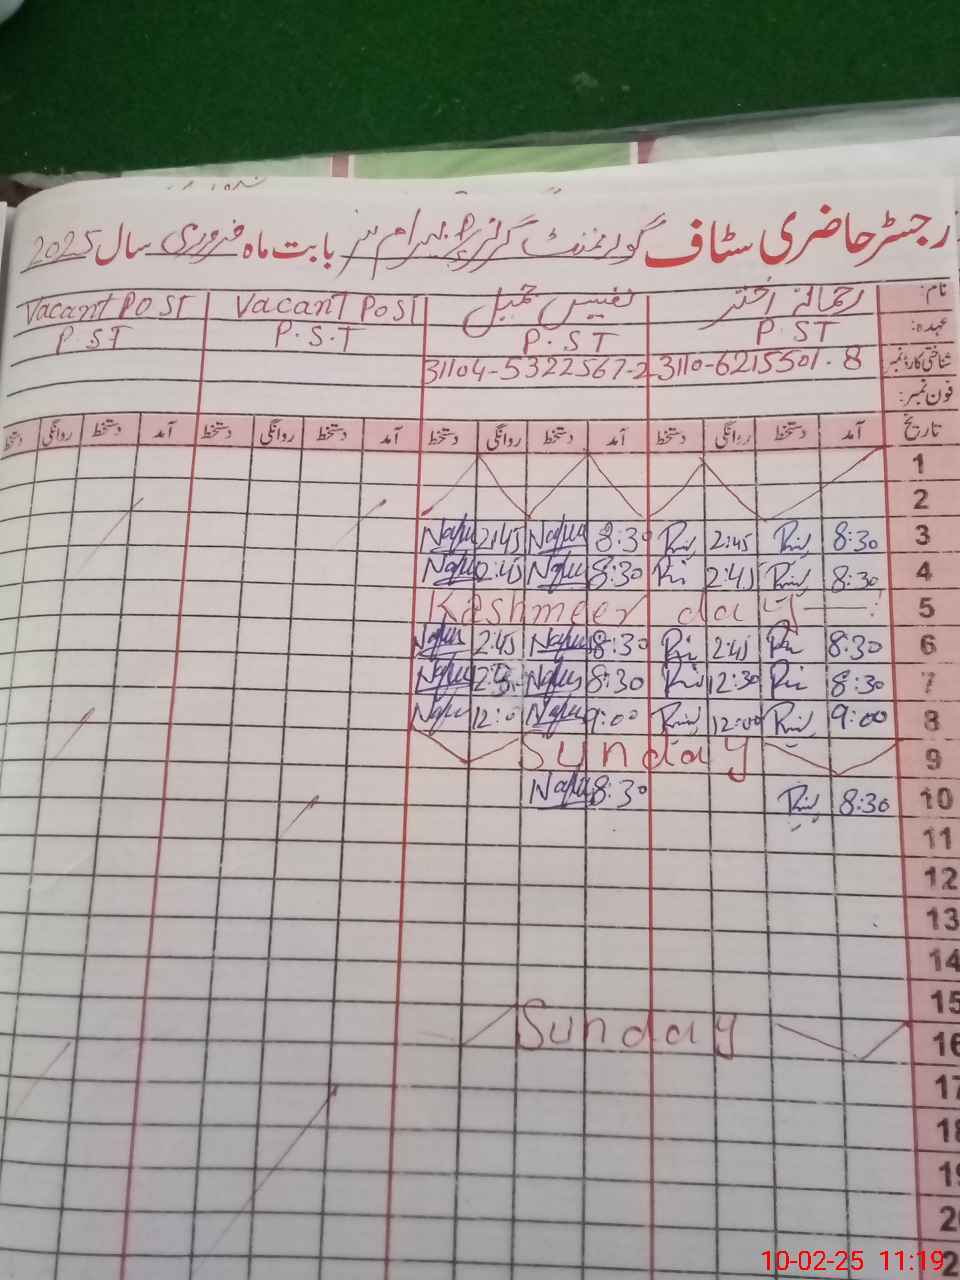 رجسٹر حاضری سٹاف گورنمنٹ گرلز بابت ماہ فروری سال 2025
نام: رحمانہ اختر نفیس جمیل Vacant POST Vacant POST
عہدہ: P.ST P.S T P.S.T P.ST
شناختی کارڈ نمبر 3110-6215501.8 31104-5322567-2
فون نمبر:
تاریخ آمد دستخط روانگی دستخط آمد دستخط روانگی دستخط آمد دستخط روانگی دستخط آمد دستخط روانگی دستخط
1
2
3 8:30 2:45 8:30 2:45
4 8:30 2:45 8:30 2:45
5 Kashmeer day
6 8:30 2:45 8:30 2:45
7 8:30 12:30 8:30
8 9:00 12:00 9:00 12:0
9 Sunday
10 8:30 8:30
11
12
13
14
15
16 Sunday
17
18
19
10-02-25 11:19